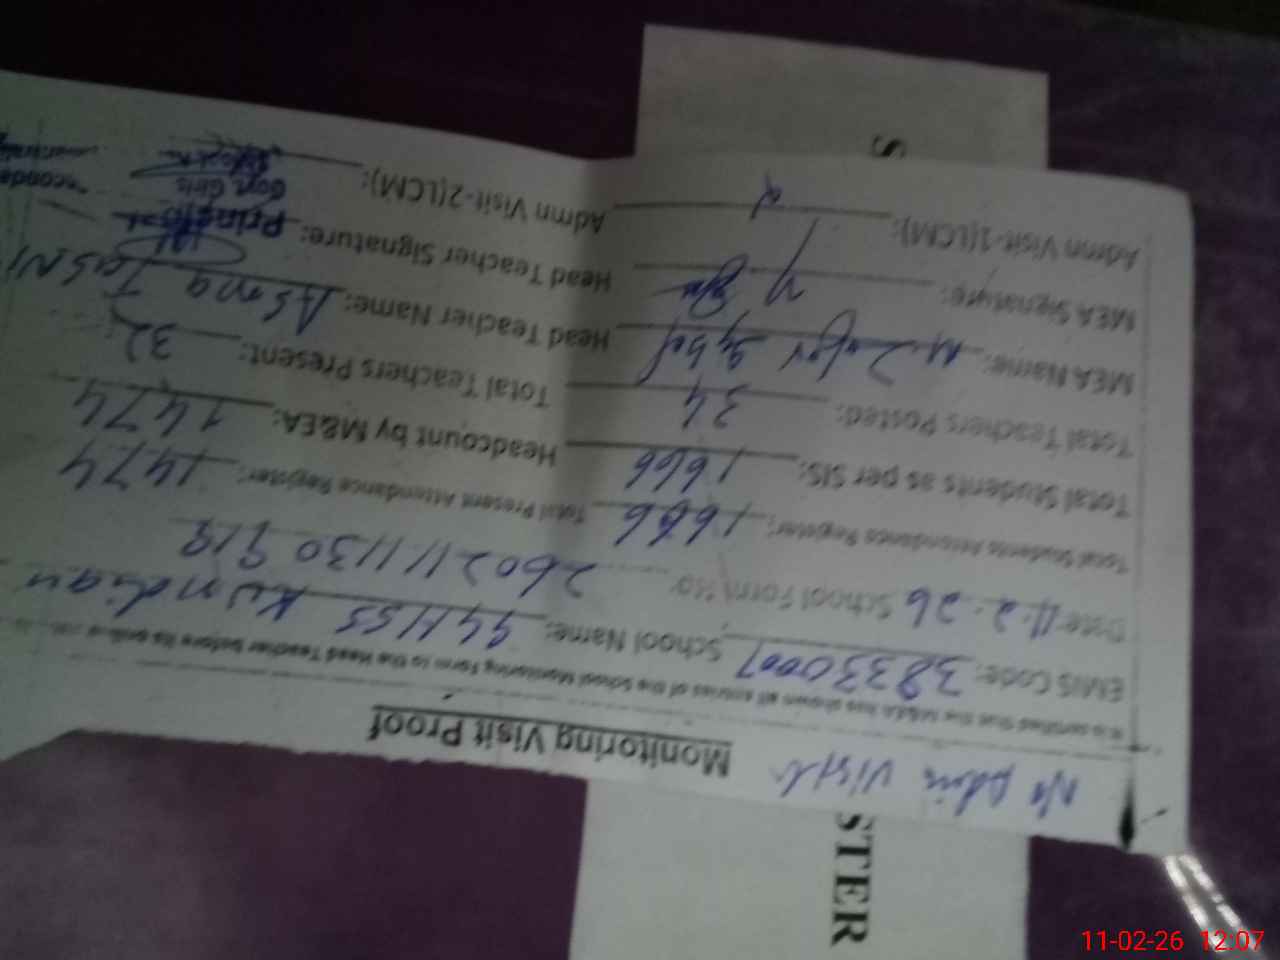 No Admin Visit
Monitoring Visit Proof
It is certified that the M&EA has shown all entries of the School Monitoring Form to the Head Teacher before its
EMIS Code: 38330007 School Name: GGHSS Kundian
Date: 11-2-26 School Form No: 26021111130919
Total Students Attendance Register: 1666 Total Present Attendance Register: 1474
Total Students as per SIS: 1666 Headcount by M&EA: 1474
Total Teachers Posted: 34 Total Teachers Present: 32
MEA Name: M. Zafar Iqbal Head Teacher Name: Asma
MEA Signature: Head Teacher Signature:
Principal
Govt. Girls
Admn Visit-1(LCM): Admn Visit-2(LCM):
STER
11-02-26 12:07